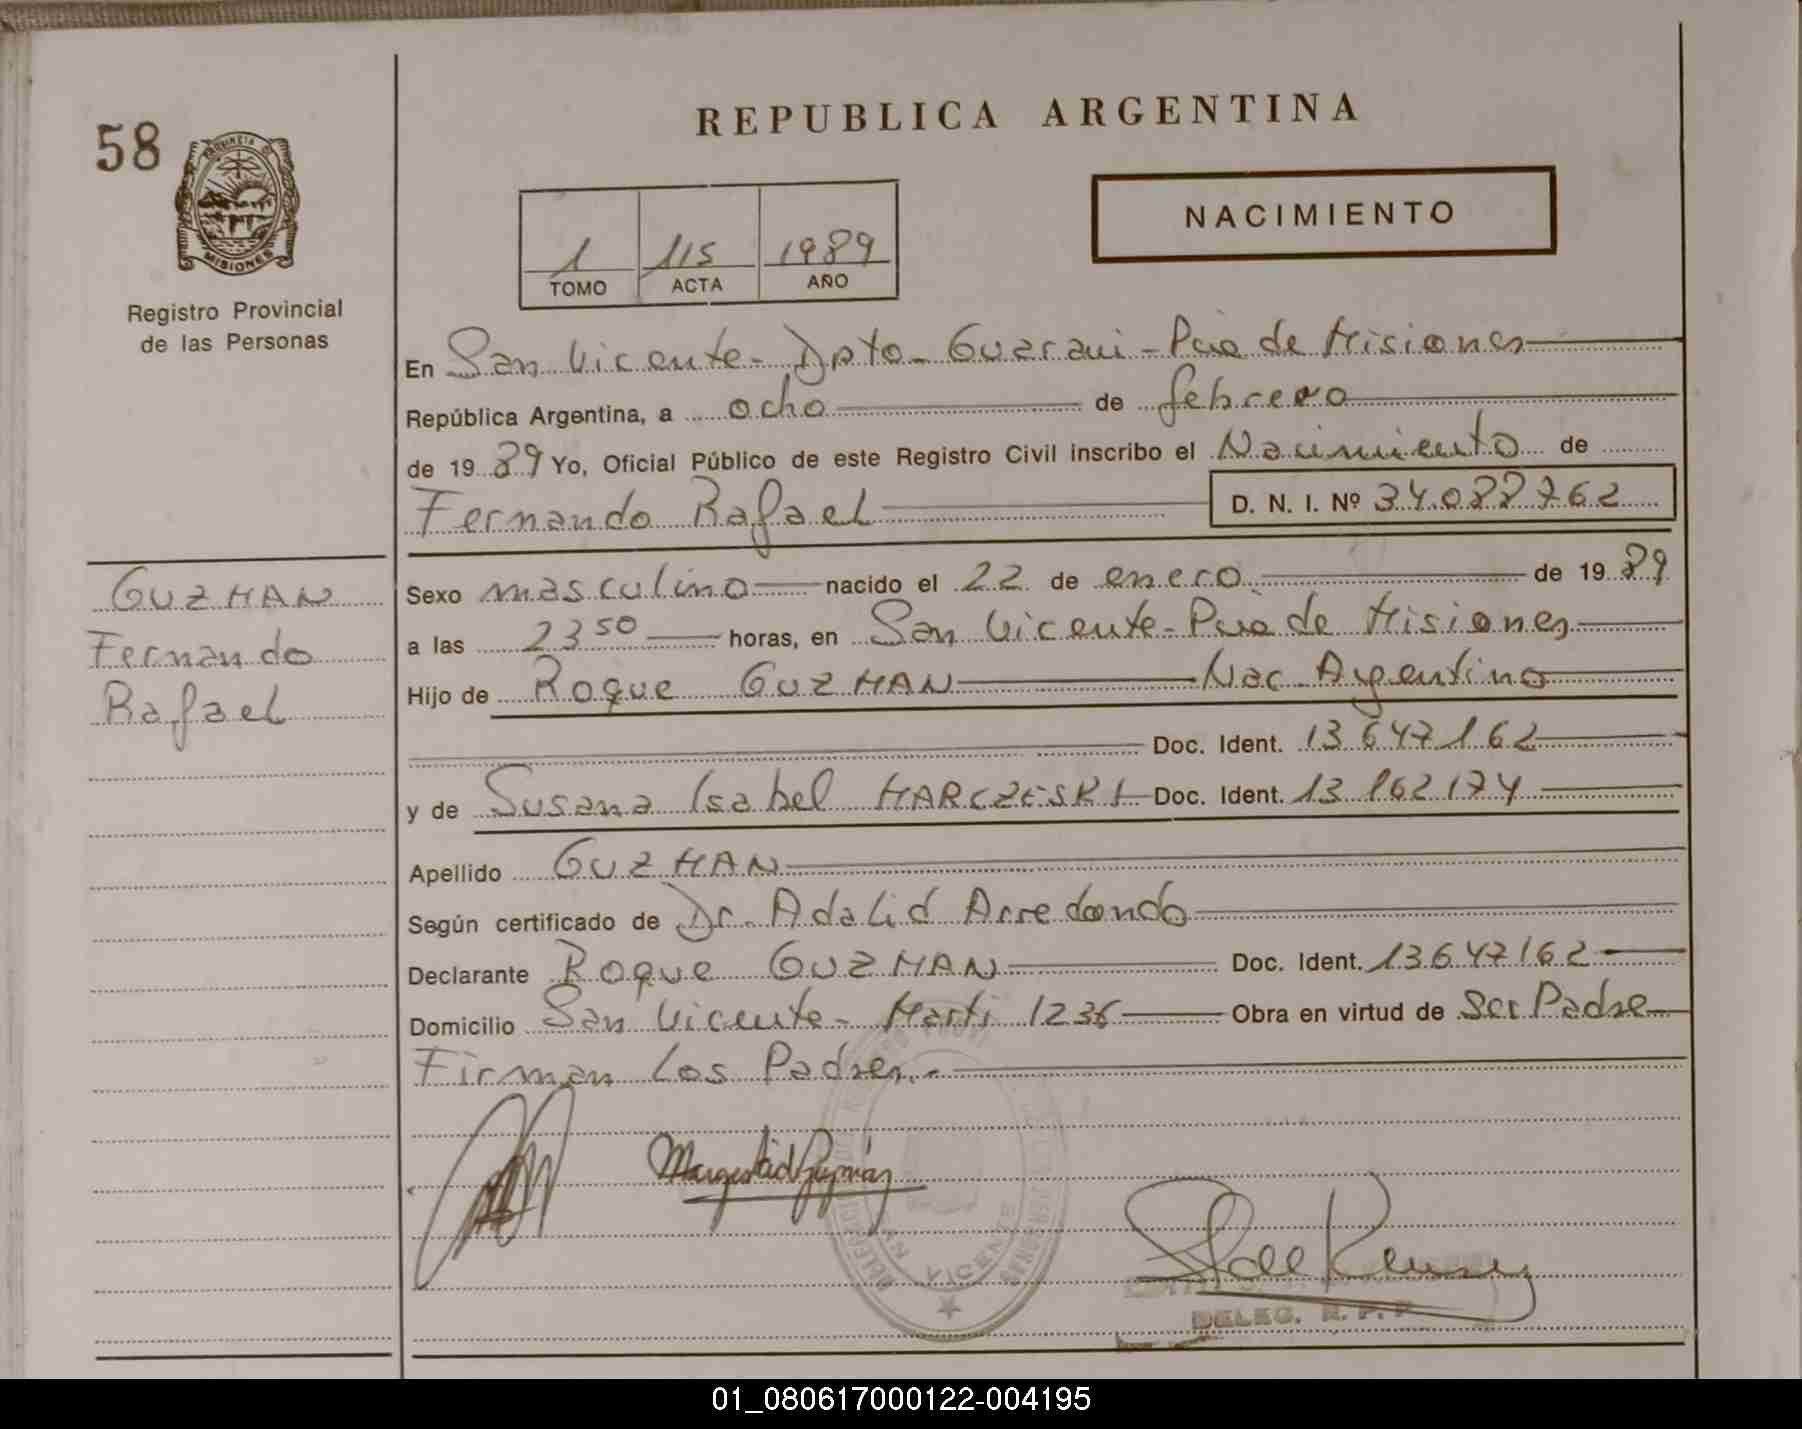 58
PROVINCIA DE
MISIONES
Registro Provincial
de las Personas
REPUBLICA ARGENTINA
NACIMIENTO
1 115 1989
TOMO ACTA AÑO
En San Vicente - Dpto - Guarani - Pcia de Misiones
República Argentina, a ocho de febrero
de 19 89 Yo, Oficial Público de este Registro Civil inscribo el Nacimiento de
Fernando Rafael D. N. I. Nº 34.088762
GUZMAN
Fernando
Rafael
Sexo masculino nacido el 22 de enero de 19 89
a las 23 50 horas, en San Vicente - Pcia de Misiones
Hijo de Roque GUZMAN Nac. Argentino
Doc. Ident. 13647162
y de Susana Isabel MARCZESKI Doc. Ident. 13162174
Apellido GUZMAN
Según certificado de Dr. Adalid Arredondo
Declarante Roque GUZMAN Doc. Ident. 13647162
Domicilio San Vicente - Marti 1236 Obra en virtud de ser Padre
Firman Los Padres.-
VICENTE
DELEG. R. P. P.
01_080617000122-004195